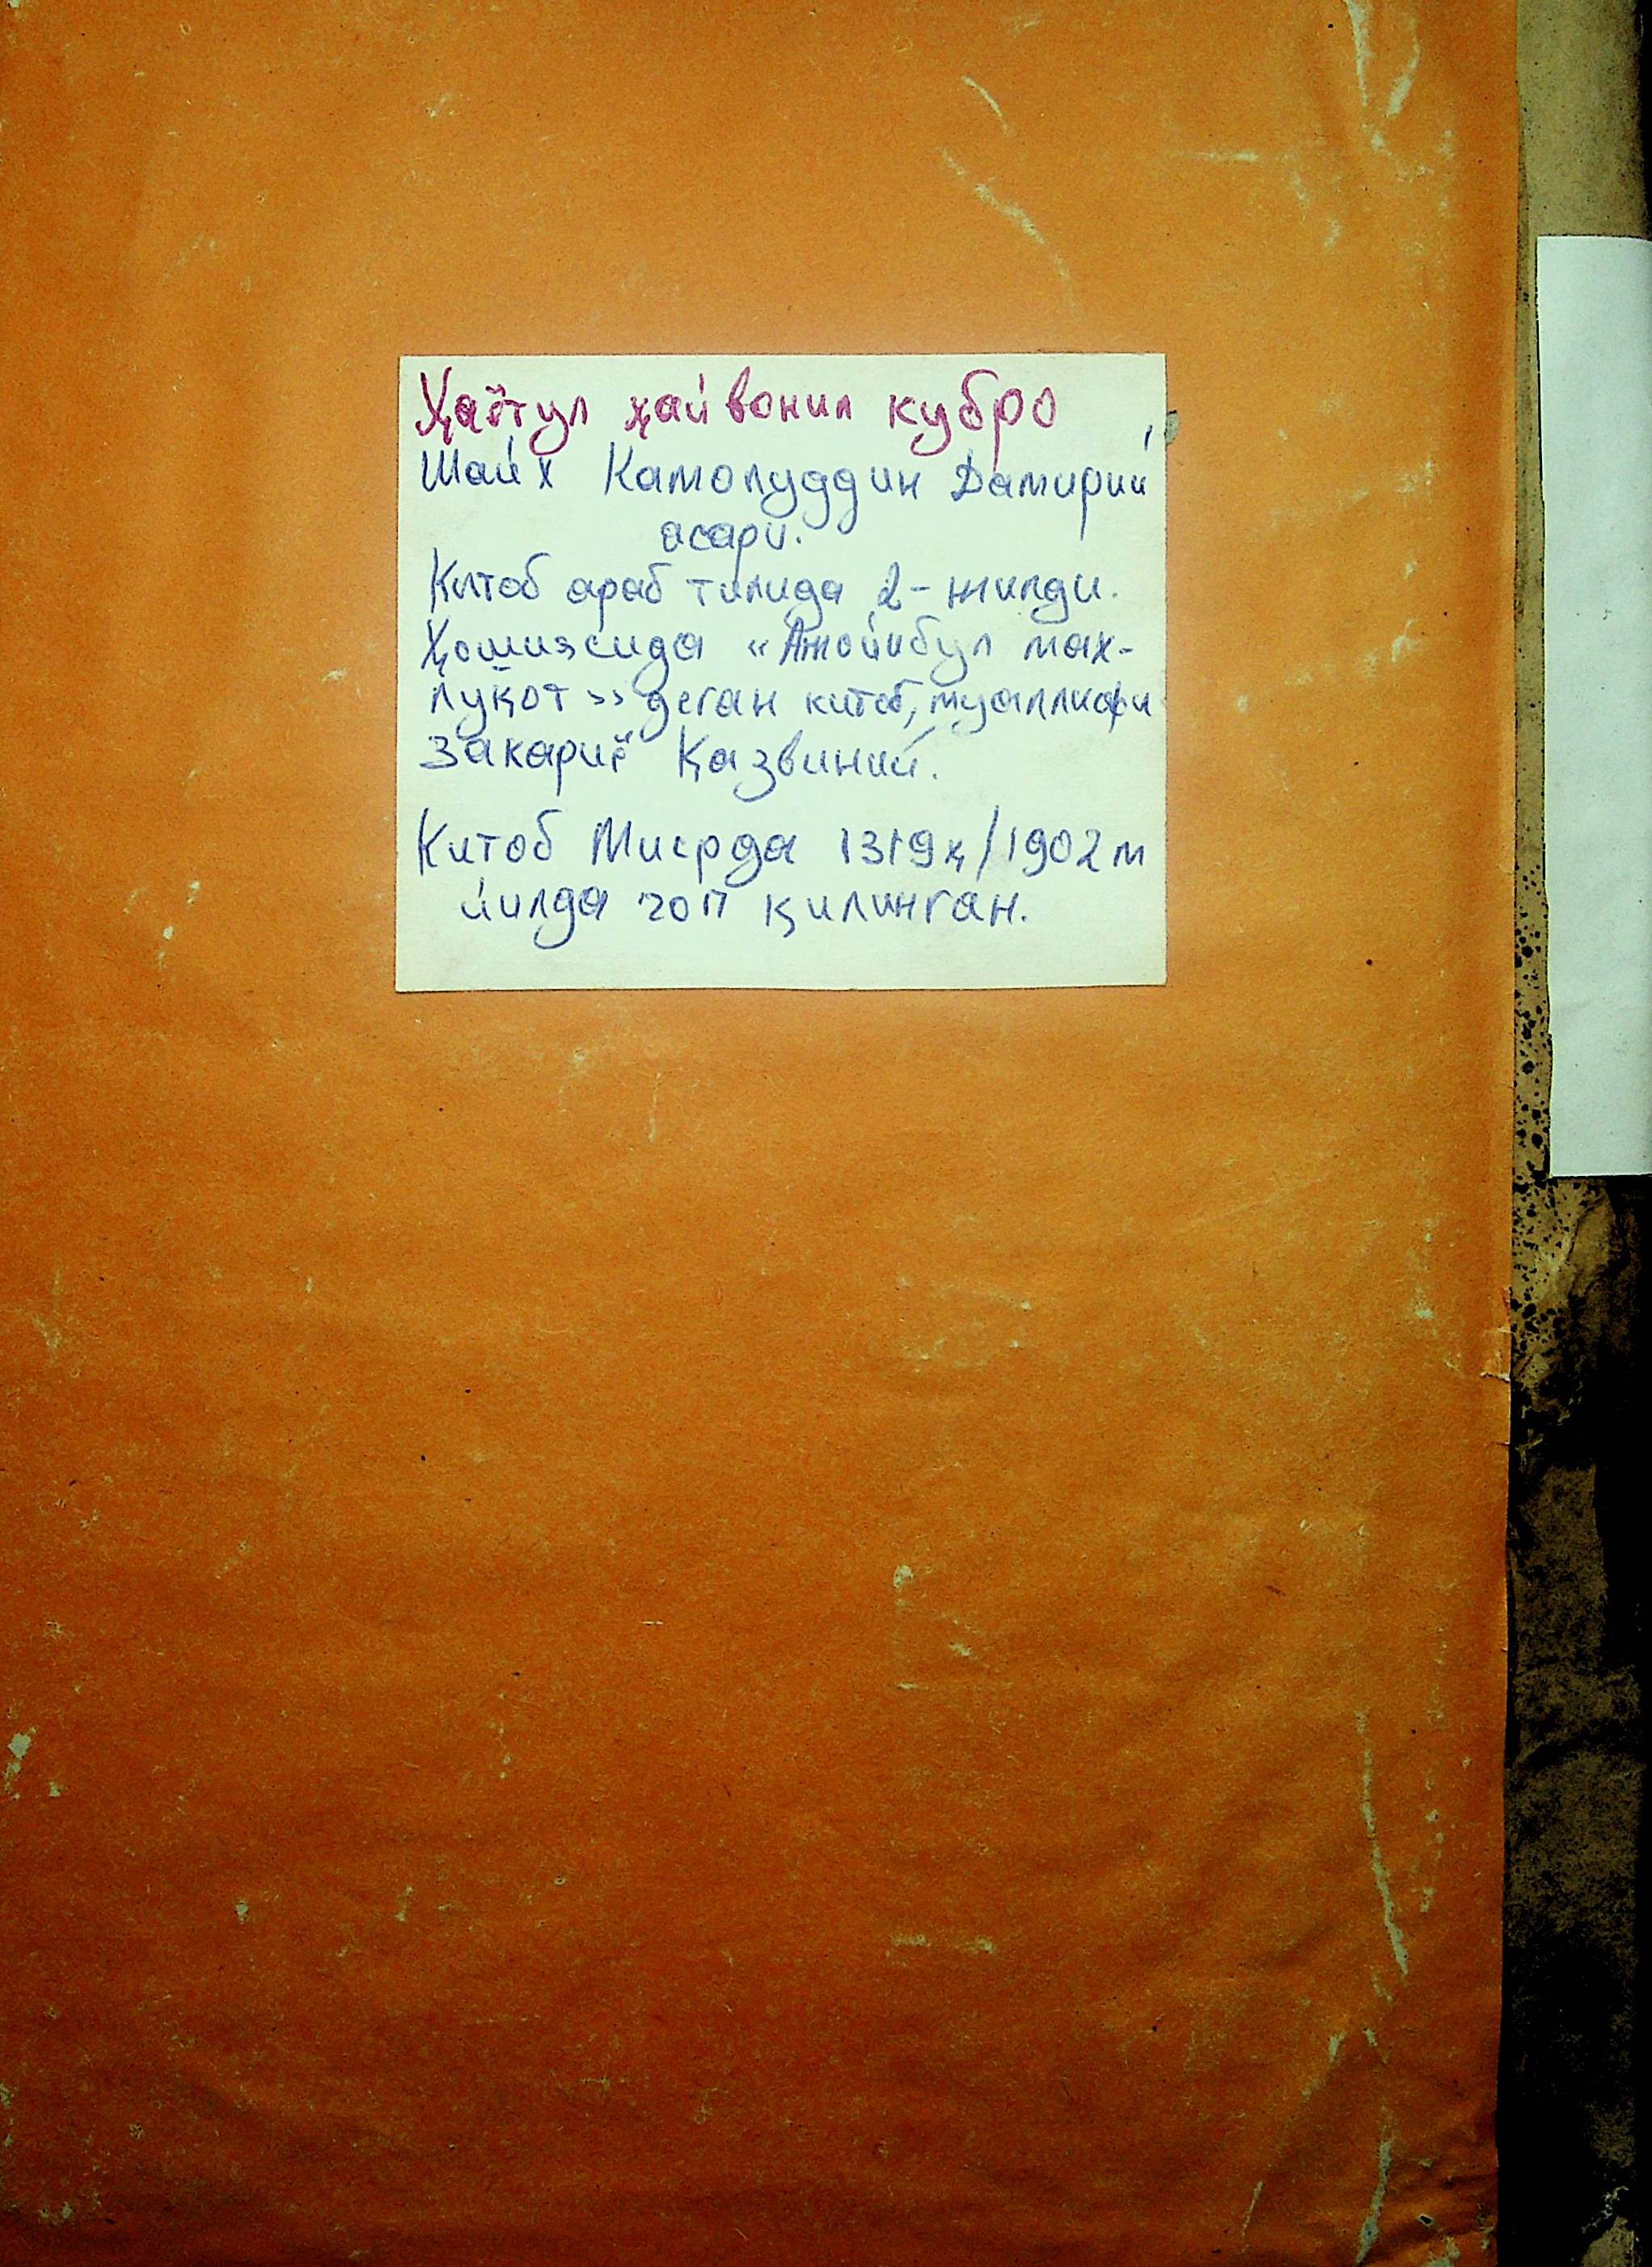 Ҳаётул ҳайвонил кубро
Шайх Камолуддин Дамирий
асари.
Китоб араб тилида 2-жилди.
Ҳошиясида «Ажойибул мах-
луқот» деган китоб, муаллифи
Закариё Қазвиний.
Китоб Мисрда 1319ҳ/1902м
йилда чоп қилинган.